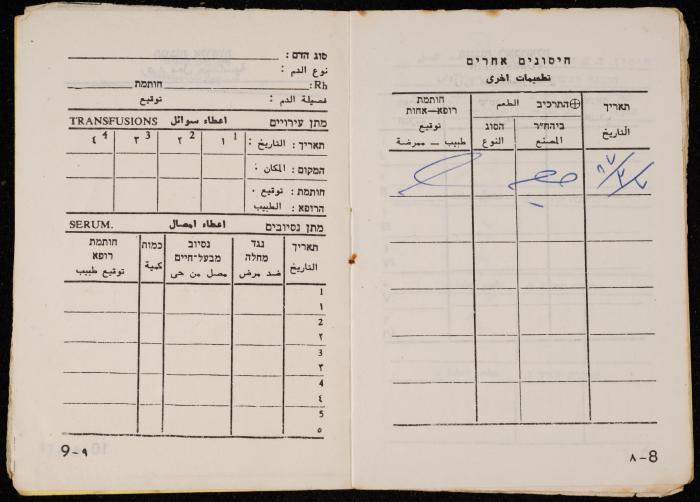 חיסונים אחרים
تطعيمات اخرى
תאריך
التاريخ
התרכיב الطعم
ביהח״ר
المصنع
הסוג
النوع
חותמת
רופא—אחות
توقيع
طبيب — ممرضة
٨-8
סוג הדם:
نوع الدم:
Rh:
חותמת
فصيلة الدم:
توقيع
מתן עירויים اعطاء سوائل TRANSFUSIONS
תאריך: التاريخ: 1 ١ 2 ٢ 3 ٣ 4 ٤
המקום: المكان:
חותמת: توقيع
הרופא: الطبيب
מתן נסיובים اعطاء امصال SERUM.
תאריך
التاريخ
נגד
מחלה
ضد مرض
נסיוב
מבעל-חיים
مصل من حى
כמות
كمية
חותמת
רופא
توقيع طبيب
1
١
2
٢
3
٣
4
٤
5
٥
9-٩